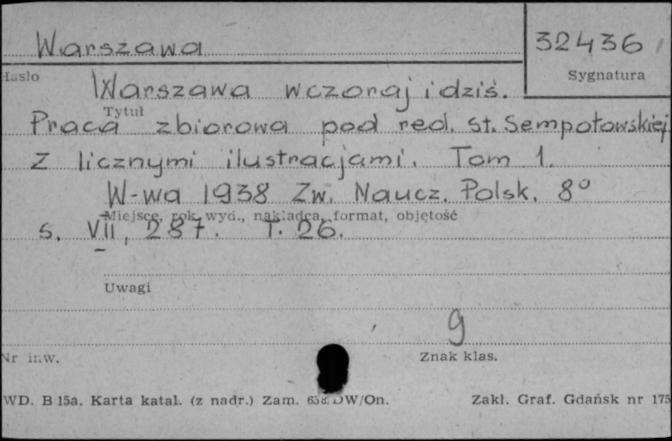 Warszawa
32436
Hasło
Sygnatura
Warszawa wczoraj i dziś.
Tytuł
Praca zbiorowa pod red. St. Sempołowskiej
Z licznymi ilustracjami. Tom 1.
W-wa 1938 Zw. Naucz. Polsk. 8°
Miejsce, rok wyd., nakładca, format, objętość
s. VII, 287. T. 26.
Uwagi
g
Nr inw.
Znak klas.
WD. B 15a. Karta katal. (z nadr.) Zam. DW/On.
Zakł. Graf. Gdańsk nr 175